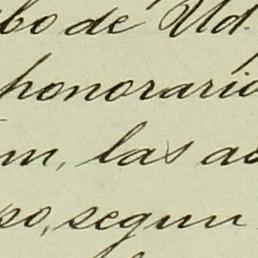 bo de Ud.
honorario
m, las ac
so, segun